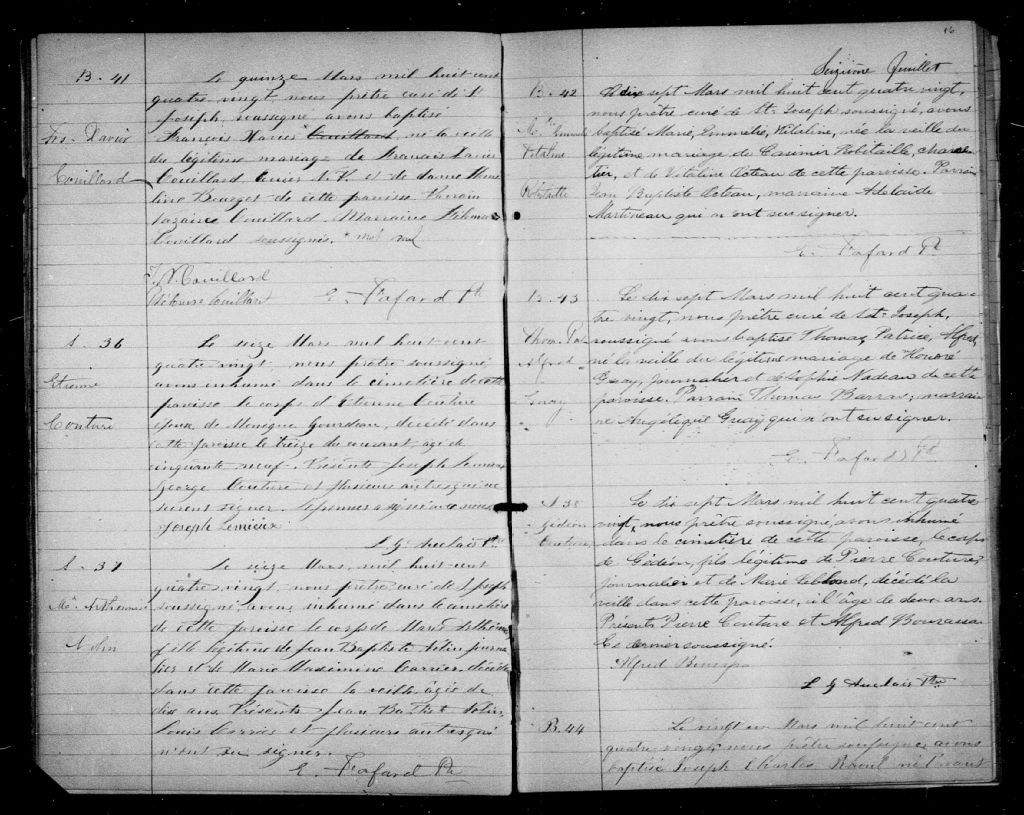 B. 41
Frs. Xavier
Couillard
Le quinze Mars mil huit cent
quatre vingt, nous prêtre curé de St
Joseph, soussigné avons baptisé
François Xavier Couillard né la veille
du légitime mariage de François Xavier
Couillard, et de dame
Bourget de cette paroisse. Parrain
Lazaire Couillard. Marraine
Couillard soussignés. * mot nul
F. X. Couillard
Couillard
E. Fafard Ptr
S. 36
Etienne
Couture
Le seize Mars mil huit cent
quatre vingt, nous prêtre soussigné
avons inhumé dans le cimetière de cette
paroisse le corps d'Etienne Couture
époux de Monique Gourdeau, décédé dans
cette paroisse le treize du courant, agé de
cinquante neuf. Présents Joseph Lemieux
George Couture et plusieurs autres qui ne
surent signer. a signé avec nous
Joseph Lemieux
L G Auclair Ptre
S. 37
Me. Arthémise
Nolin
Le seize Mars, mil huit cent
quatre vingt, nous prêtre curé de St Joseph
soussigné avons inhumé dans le cimetière
de cette paroisse le corps de Marie Arthémise
fille légitime de Jean Baptiste Nolin journa
lier et de Marie Maximine Carrier, décédée
dans cette paroisse la veille, âgée de
dix ans. Présents Jean Baptiste Nolin
Louis Carrier et plusieurs autres qui
n'ont su signer.
E. Fafard Ptr
16
Seizième Feuillet
B. 42
Me
Vitaline
Robitaille
Le dix sept Mars mil huit cent quatre vingt,
nous prêtre curé de St. Joseph soussigné, avons
baptisé Marie, Vitaline, née la veille du
légitime mariage de Casimir Robitaille,
et de Vitaline Octeau de cette paroisse. Parrain
Jean Baptiste Octeau, marraine Adelaïde
Martineau qui n'ont su signer.
E. Fafard Ptr
B. 43
Thom. Pat
Alfred
Guay
Le dix sept Mars mil huit cent qua
tre vingt, nous prêtre curé de St. Joseph,
soussigné avons baptisé Thomas, Patrice, Alfred
né la veille du légitime mariage de Honoré
Guay, journalier et de Sophie Nadeau de cette
paroisse. Parrain Thomas Barras, marrai
ne Angélique Guay qui n'ont su signer.
E. Fafard Ptr
S 38
Gédéon
Couture
Le dix sept Mars mil huit cent quatre
vingt, nous prêtre soussigné, avons inhumé
dans le cimetière de cette paroisse, le corps
de Gédéon, fils légitime de Pierre Couture,
journalier et de Marie Leblond, décédé la
veille dans cette paroisse, à l'âge de deux ans.
Présents Pierre Couture et Alfred Bourassa
Ce dernier soussigné.
Alfred Bourassa
L G Auclair Ptre
B. 44
Le vingt un Mars mil huit cent
quatre-vingt, nous prêtre soussigné, avons
baptisé Joseph Charles Raoul né l'avant